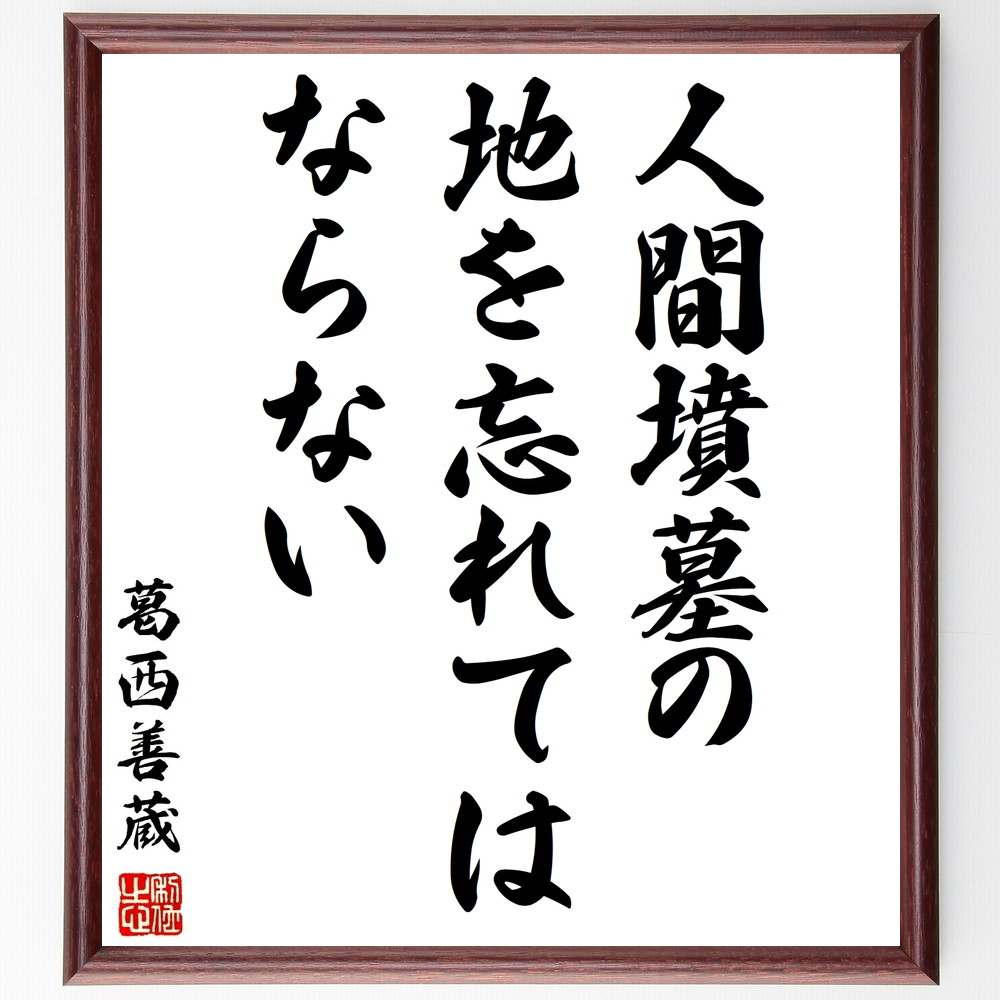 人間墳墓の
地を忘れては
ならない
葛西善蔵